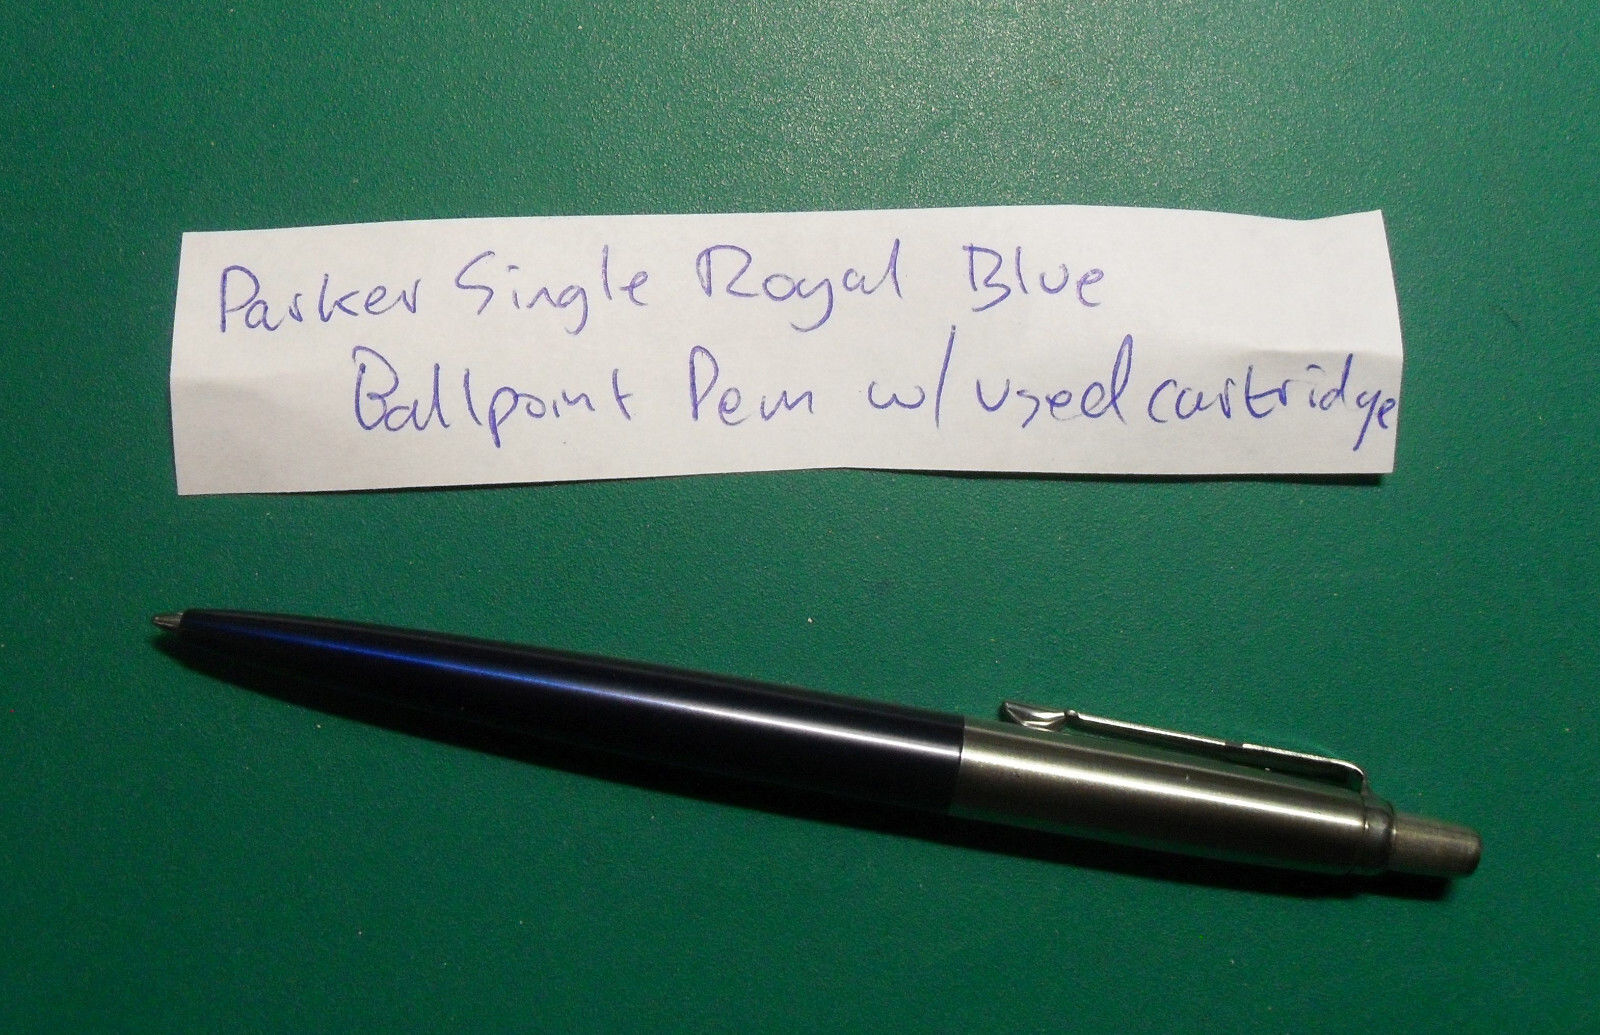 Parker Single Royal Blue
Ballpoint Pen w/ used cartridge